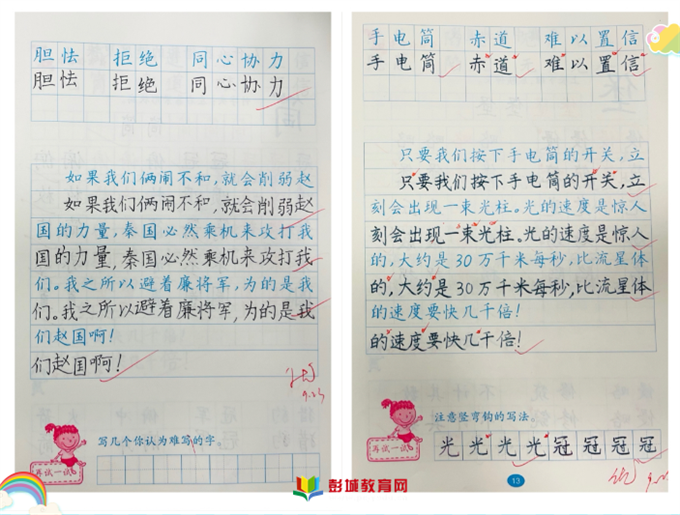 胆怯 拒绝 同心协力
胆怯 拒绝 同心协力
如果我们俩闹不和，就会削弱赵
如果我们俩闹不和，就会削弱赵
国的力量，秦国必然乘机来攻打我
国的力量，秦国必然乘机来攻打我
们。我之所以避着廉将军，为的是我
们。我之所以避着廉将军，为的是我
们赵国啊！
们赵国啊！
写几个你认为难写的字。
再试一试
手电筒 赤道 难以置信
手电筒 赤道 难以置信
只要我们按下手电筒的开关，立
只要我们按下手电筒的开关，立
刻会出现一束光柱。光的速度是惊人
刻会出现一束光柱。光的速度是惊人
的，大约是30万千米每秒，比流星体
的，大约是30万千米每秒，比流星体
的速度要快几千倍！
的速度要快几千倍！
注意竖弯钩的写法。
再试一试
光光光光冠冠冠冠
13
彭城教育网